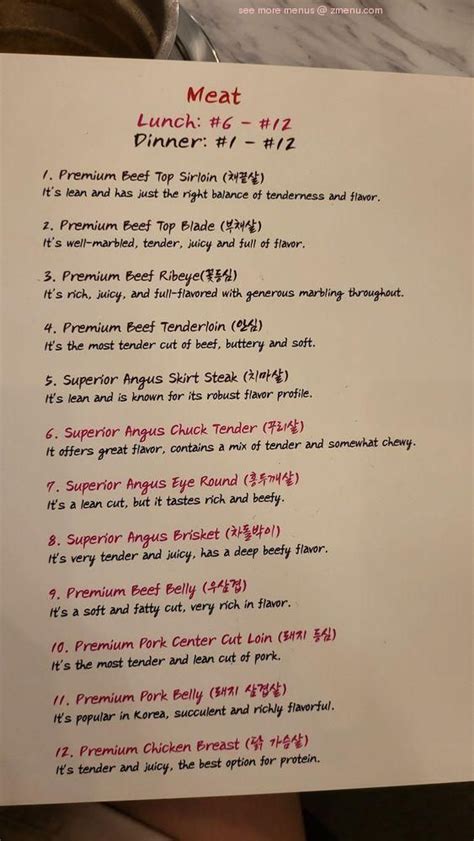 see more menus @ zmenu.com
Meat
Lunch: #6 - #12
Dinner: #1 - #12
1. Premium Beef Top Sirloin (채끝살)
It's lean and has just the right balance of tenderness and flavor.
2. Premium Beef Top Blade (부채살)
It's well-marbled, tender, juicy and full of flavor.
3. Premium Beef Ribeye(꽃등심)
It's rich, juicy, and full-flavored with generous marbling throughout.
4. Premium Beef Tenderloin (안심)
It's the most tender cut of beef, buttery and soft.
5. Superior Angus Skirt Steak (치마살)
It's lean and is known for its robust flavor profile.
6. Superior Angus Chuck Tender (꾸리살)
It offers great flavor, contains a mix of tender and somewhat chewy.
7. Superior Angus Eye Round (홍두깨살)
It's a lean cut, but it tastes rich and beefy.
8. Superior Angus Brisket (차돌박이)
It's very tender and juicy, has a deep beefy flavor.
9. Premium Beef Belly (우삼겹)
It's a soft and fatty cut, very rich in flavor.
10. Premium Pork Center Cut Loin (돼지 등심)
It's the most tender and lean cut of pork.
11. Premium Pork Belly (돼지 삼겹살)
It's popular in Korea, succulent and richly flavorful.
12. Premium Chicken Breast (닭 가슴살)
It's tender and juicy, the best option for protein.